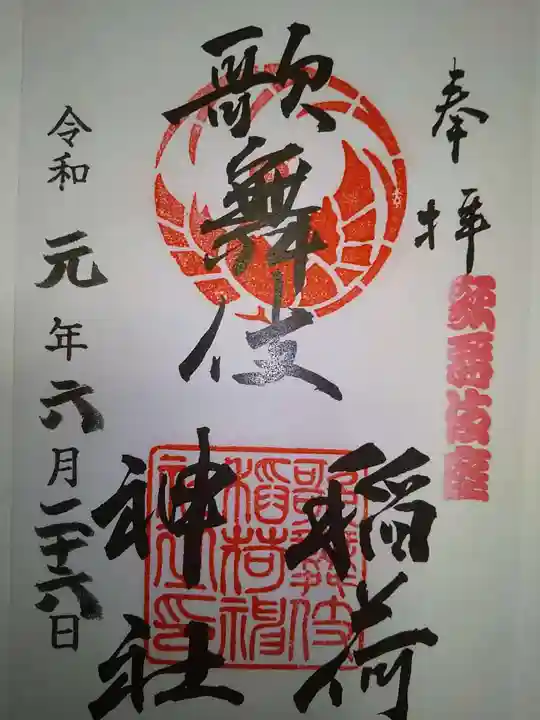 奉拝
歌舞伎座
歌舞伎
稲荷
神社
歌舞伎
稲荷神
社之印
令和元年六月二十六日